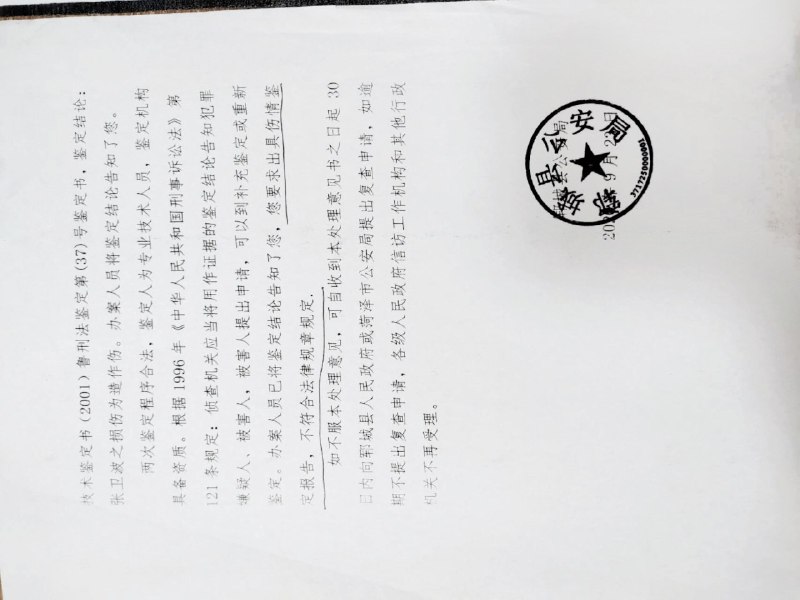 技术鉴定书（2001）鲁刑法鉴定第(37)号鉴定书，鉴定结论：
张卫波之损伤为造作伤。办案人员将鉴定结论告知了您。
两次鉴定程序合法，鉴定人为专业技术人员，鉴定机构
具备资质。根据1996年《中华人民共和国刑事诉讼法》第
121条规定：侦查机关应当将用作证据的鉴定结论告知犯罪
嫌疑人、被害人，被害人提出申请，可以到补充鉴定或重新
鉴定。办案人员已将鉴定结论告知了您，您要求出具伤情鉴
定报告，不符合法律规章规定.
如不服本处理意见，可自收到本处理意见书之日起30
日内向郓城县人民政府或菏泽市公安局提出复查申请，如逾
期不提出复查申请，各级人民政府信访工作机构和其他行政
机关不再受理。
郓城县公安局
9月23日
郓城县公安局